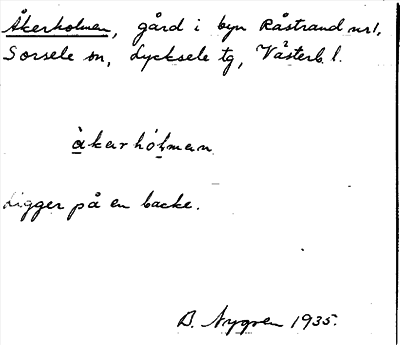 Åkerholman, gård i byn Råstrand nr 1,
Sorsele sn, Lycksele tg, Västerb. l.
àkarhólman
Ligger på en backe.
B. Nygren 1935.